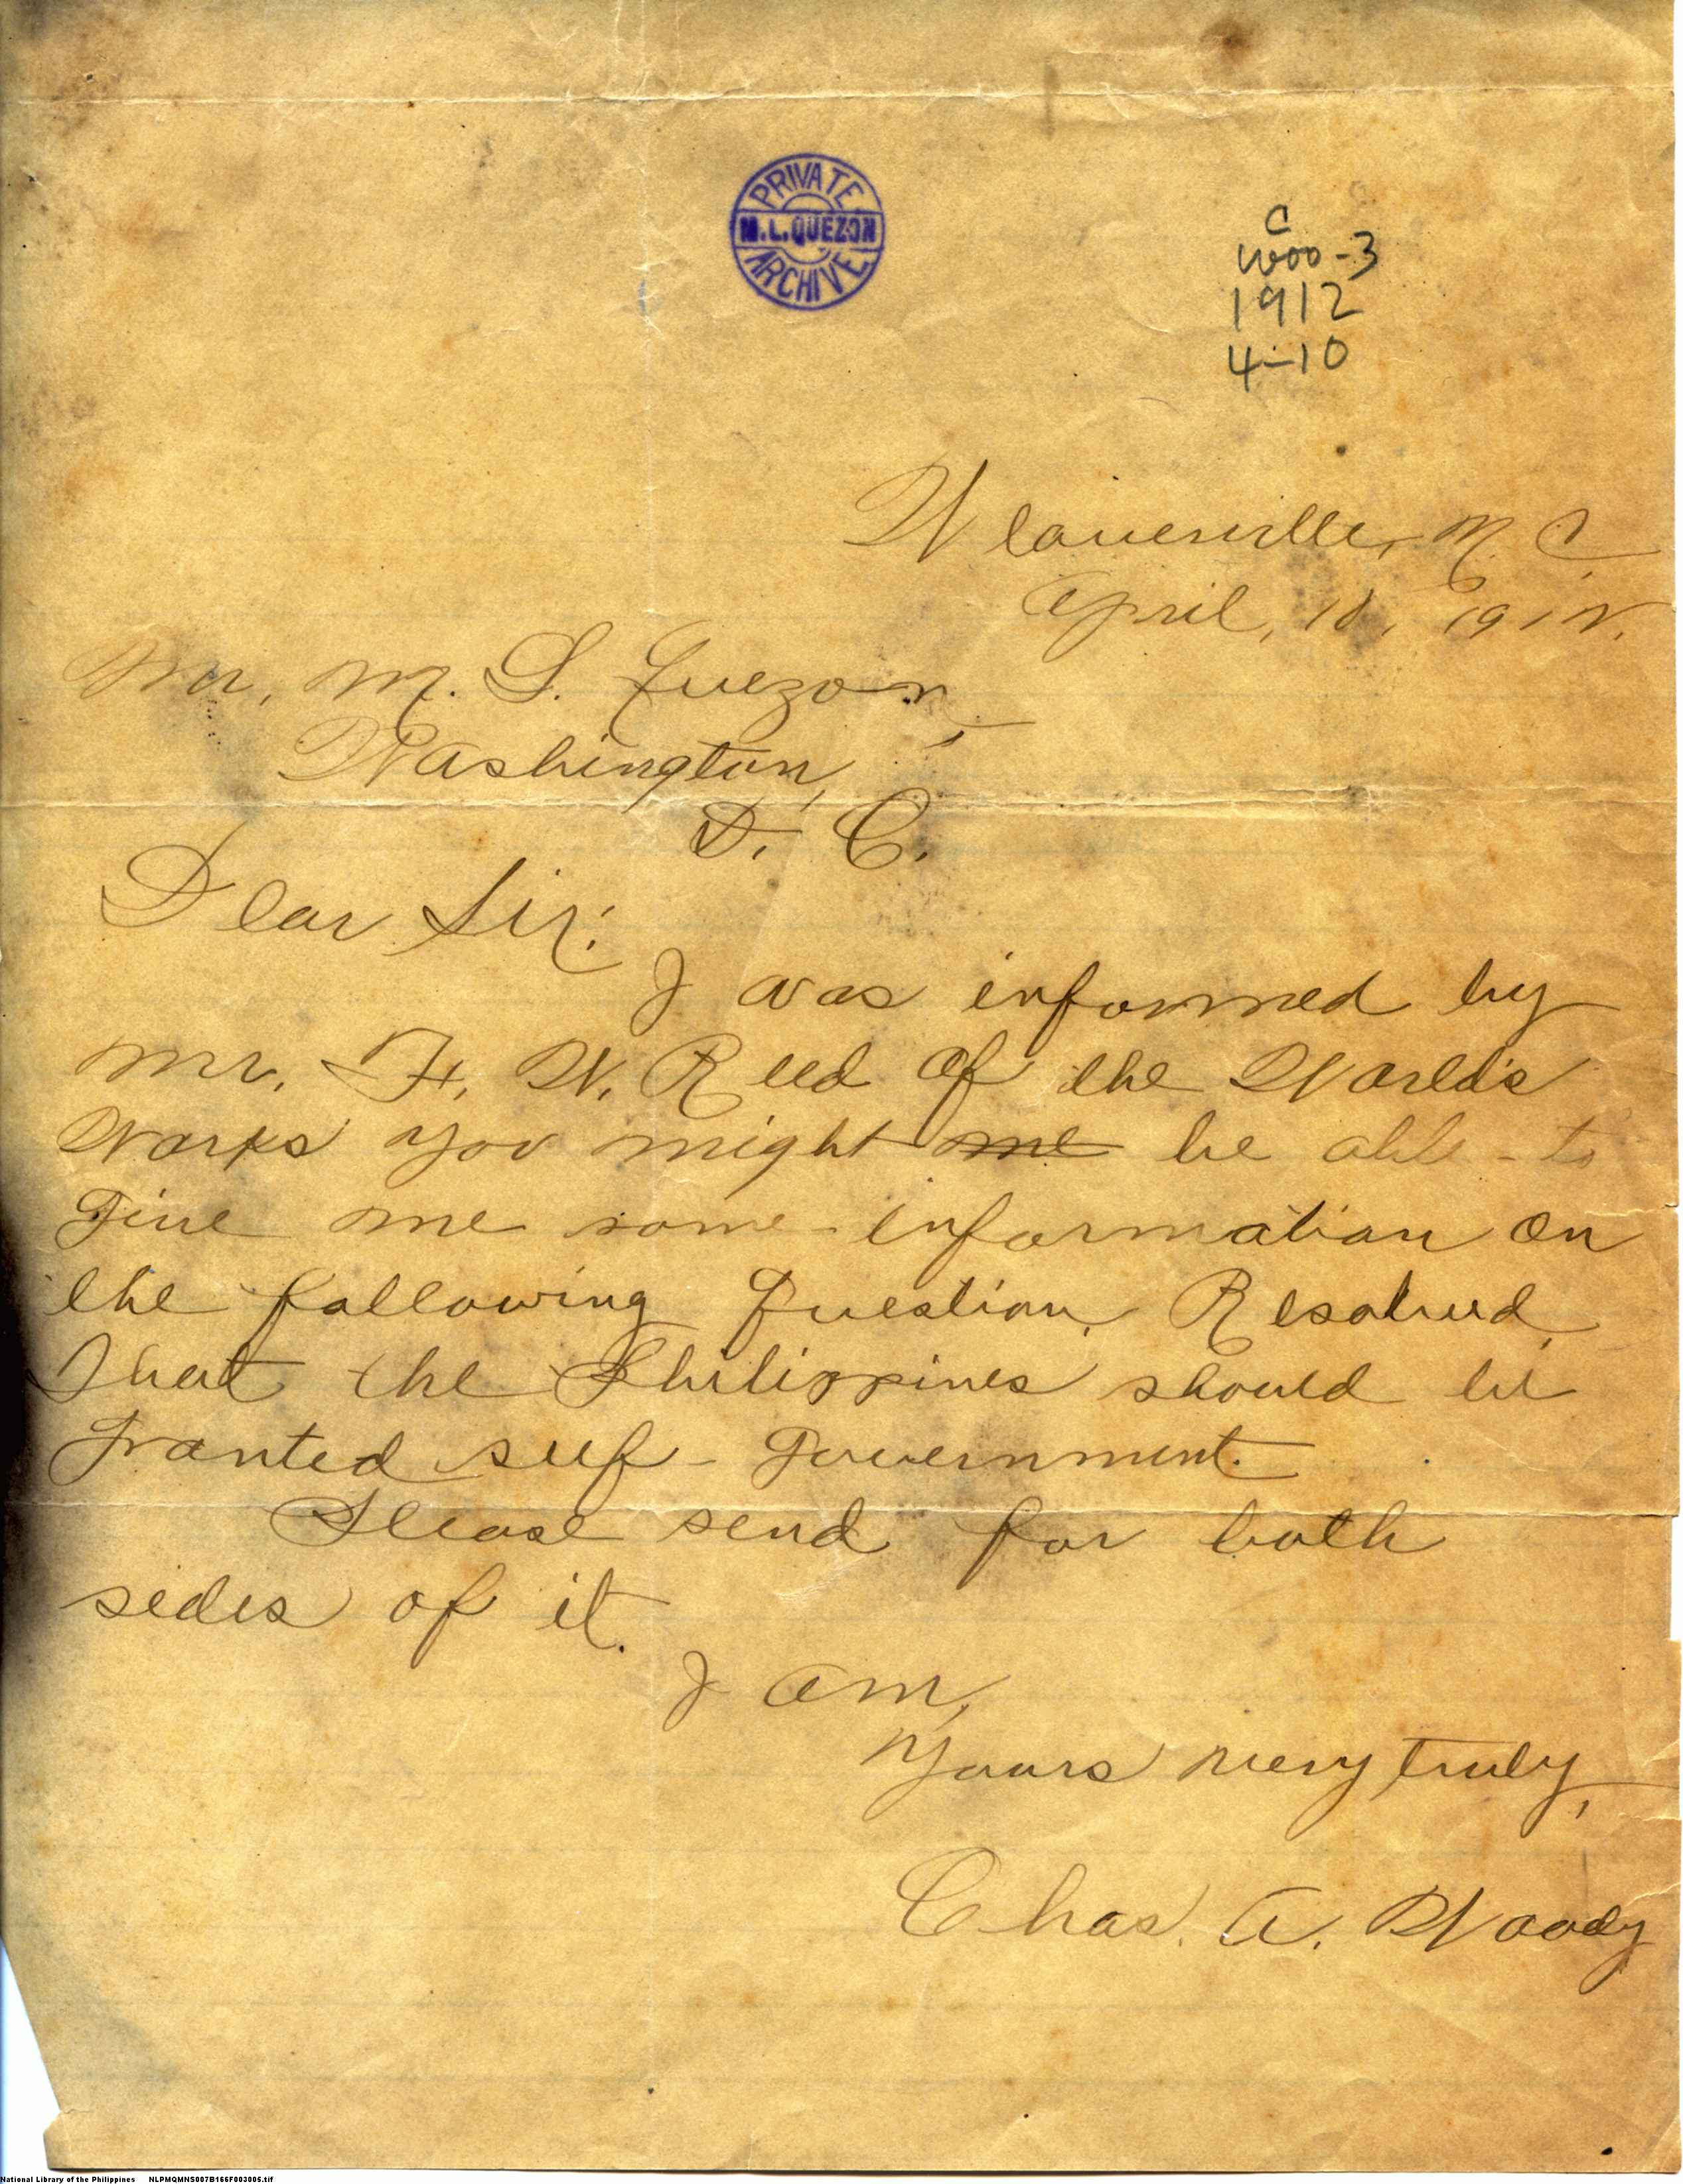 PRIVATE
M.L.QUEZON
ARCHIVE
C
Woo-3
1912
4-10
Weaverville, N. C.
April, 10, 1912.
Mr. M. L. Quezon,
Washington,
D. C.
Dear Sir:
I was informed by
Mr. F. W. Reed of the World's
Works you might me be able to
give me some information on
the following Question. Resolved,
That the Philippines should be
Granted self-Government.
Please send for both
sides of it.
I am,
Yours very truly,
Chas. A. Woody
National Library of the Philippines NLPMQMNS007B166F003006.tif